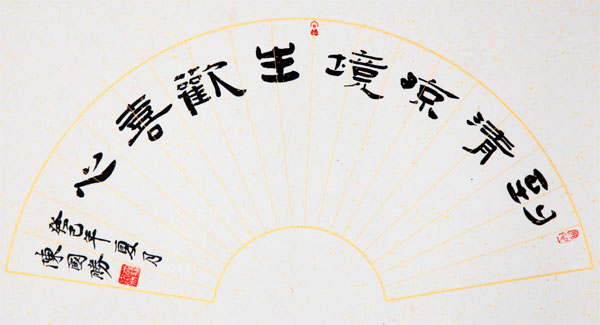 到清凉境生歡喜心
癸巳年夏
陳國勝